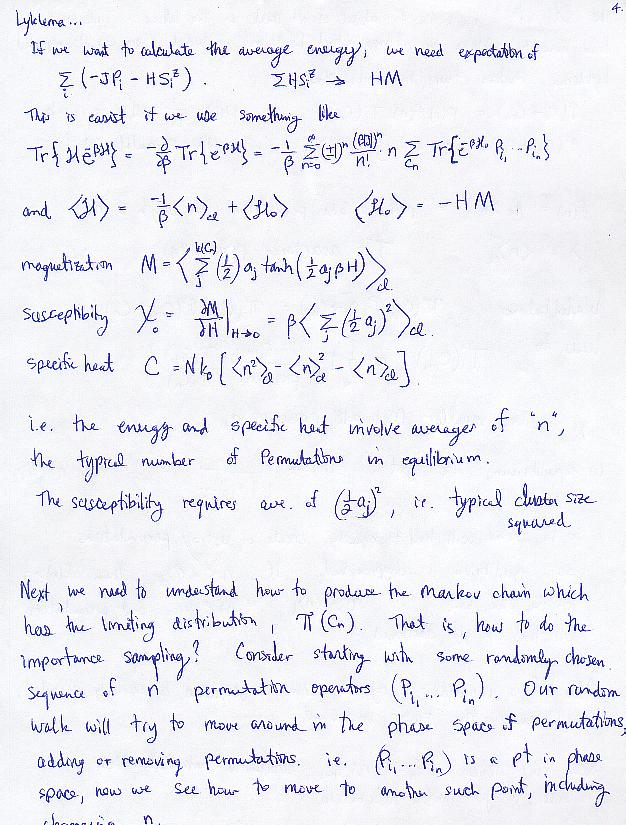 4.
Lyklema...
If we want to calculate the average energy, we need expectation of
∑_i (-JP_i - HS_i^z) .    ∑HS_i^z → HM
This is easist if we use something like
Tr{ℋe^{-βℋ}} = -∂/∂β Tr{e^{-βℋ}} = -1/β ∑_{n=0}^∞ (±)^n (βJ)^n/n! n ∑_{C_n} Tr{e^{-βℋ_0} P_{i_1}...P_{i_n}}
and ⟨ℋ⟩ = -1/β ⟨n⟩_{cl} + ⟨ℋ_0⟩    ⟨ℋ_0⟩ = -HM
magnetization M = ⟨ ∑_j^{k(C_n)} (1/2) a_j tanh(1/2 a_j βH) ⟩_{cl}
susceptibility χ_0 = ∂M/∂H|_{H→0} = β⟨ ∑_j (1/2 a_j)^2 ⟩_{cl}.
specific heat C = Nk_b [⟨n^2⟩_{cl} - ⟨n⟩_{cl}^2 - ⟨n⟩_{cl}]
i.e. the energy and specific heat involve averages of "n",
the typical number of Permutations in equilibrium.
The susceptibility requires ave. of (1/2 a_j)^2, ie. typical cluster size
squared
Next, we need to understand how to produce the Markov chain which
has the limiting distribution, Π(C_n). That is, how to do the
importance sampling? Consider starting with some randomly chosen
sequence of n permutation operators (P_{i_1}...P_{i_n}). Our random
walk will try to move around in the phase space of permutations,
adding or removing permutations. i.e. (P_{i_1}...P_{i_n}) is a pt in phase
space, now we see how to move to another such point, including
changing n.